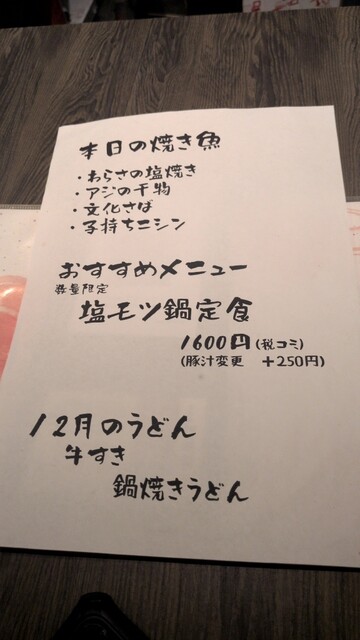 本日の焼き魚
・わらさの塩焼き
・アジの干物
・文化さば
・子持ちニシン
おすすめメニュー
数量限定
塩モツ鍋定食
1600円(税コミ)
(豚汁変更 +250円)
12月のうどん
牛すき
鍋焼きうどん